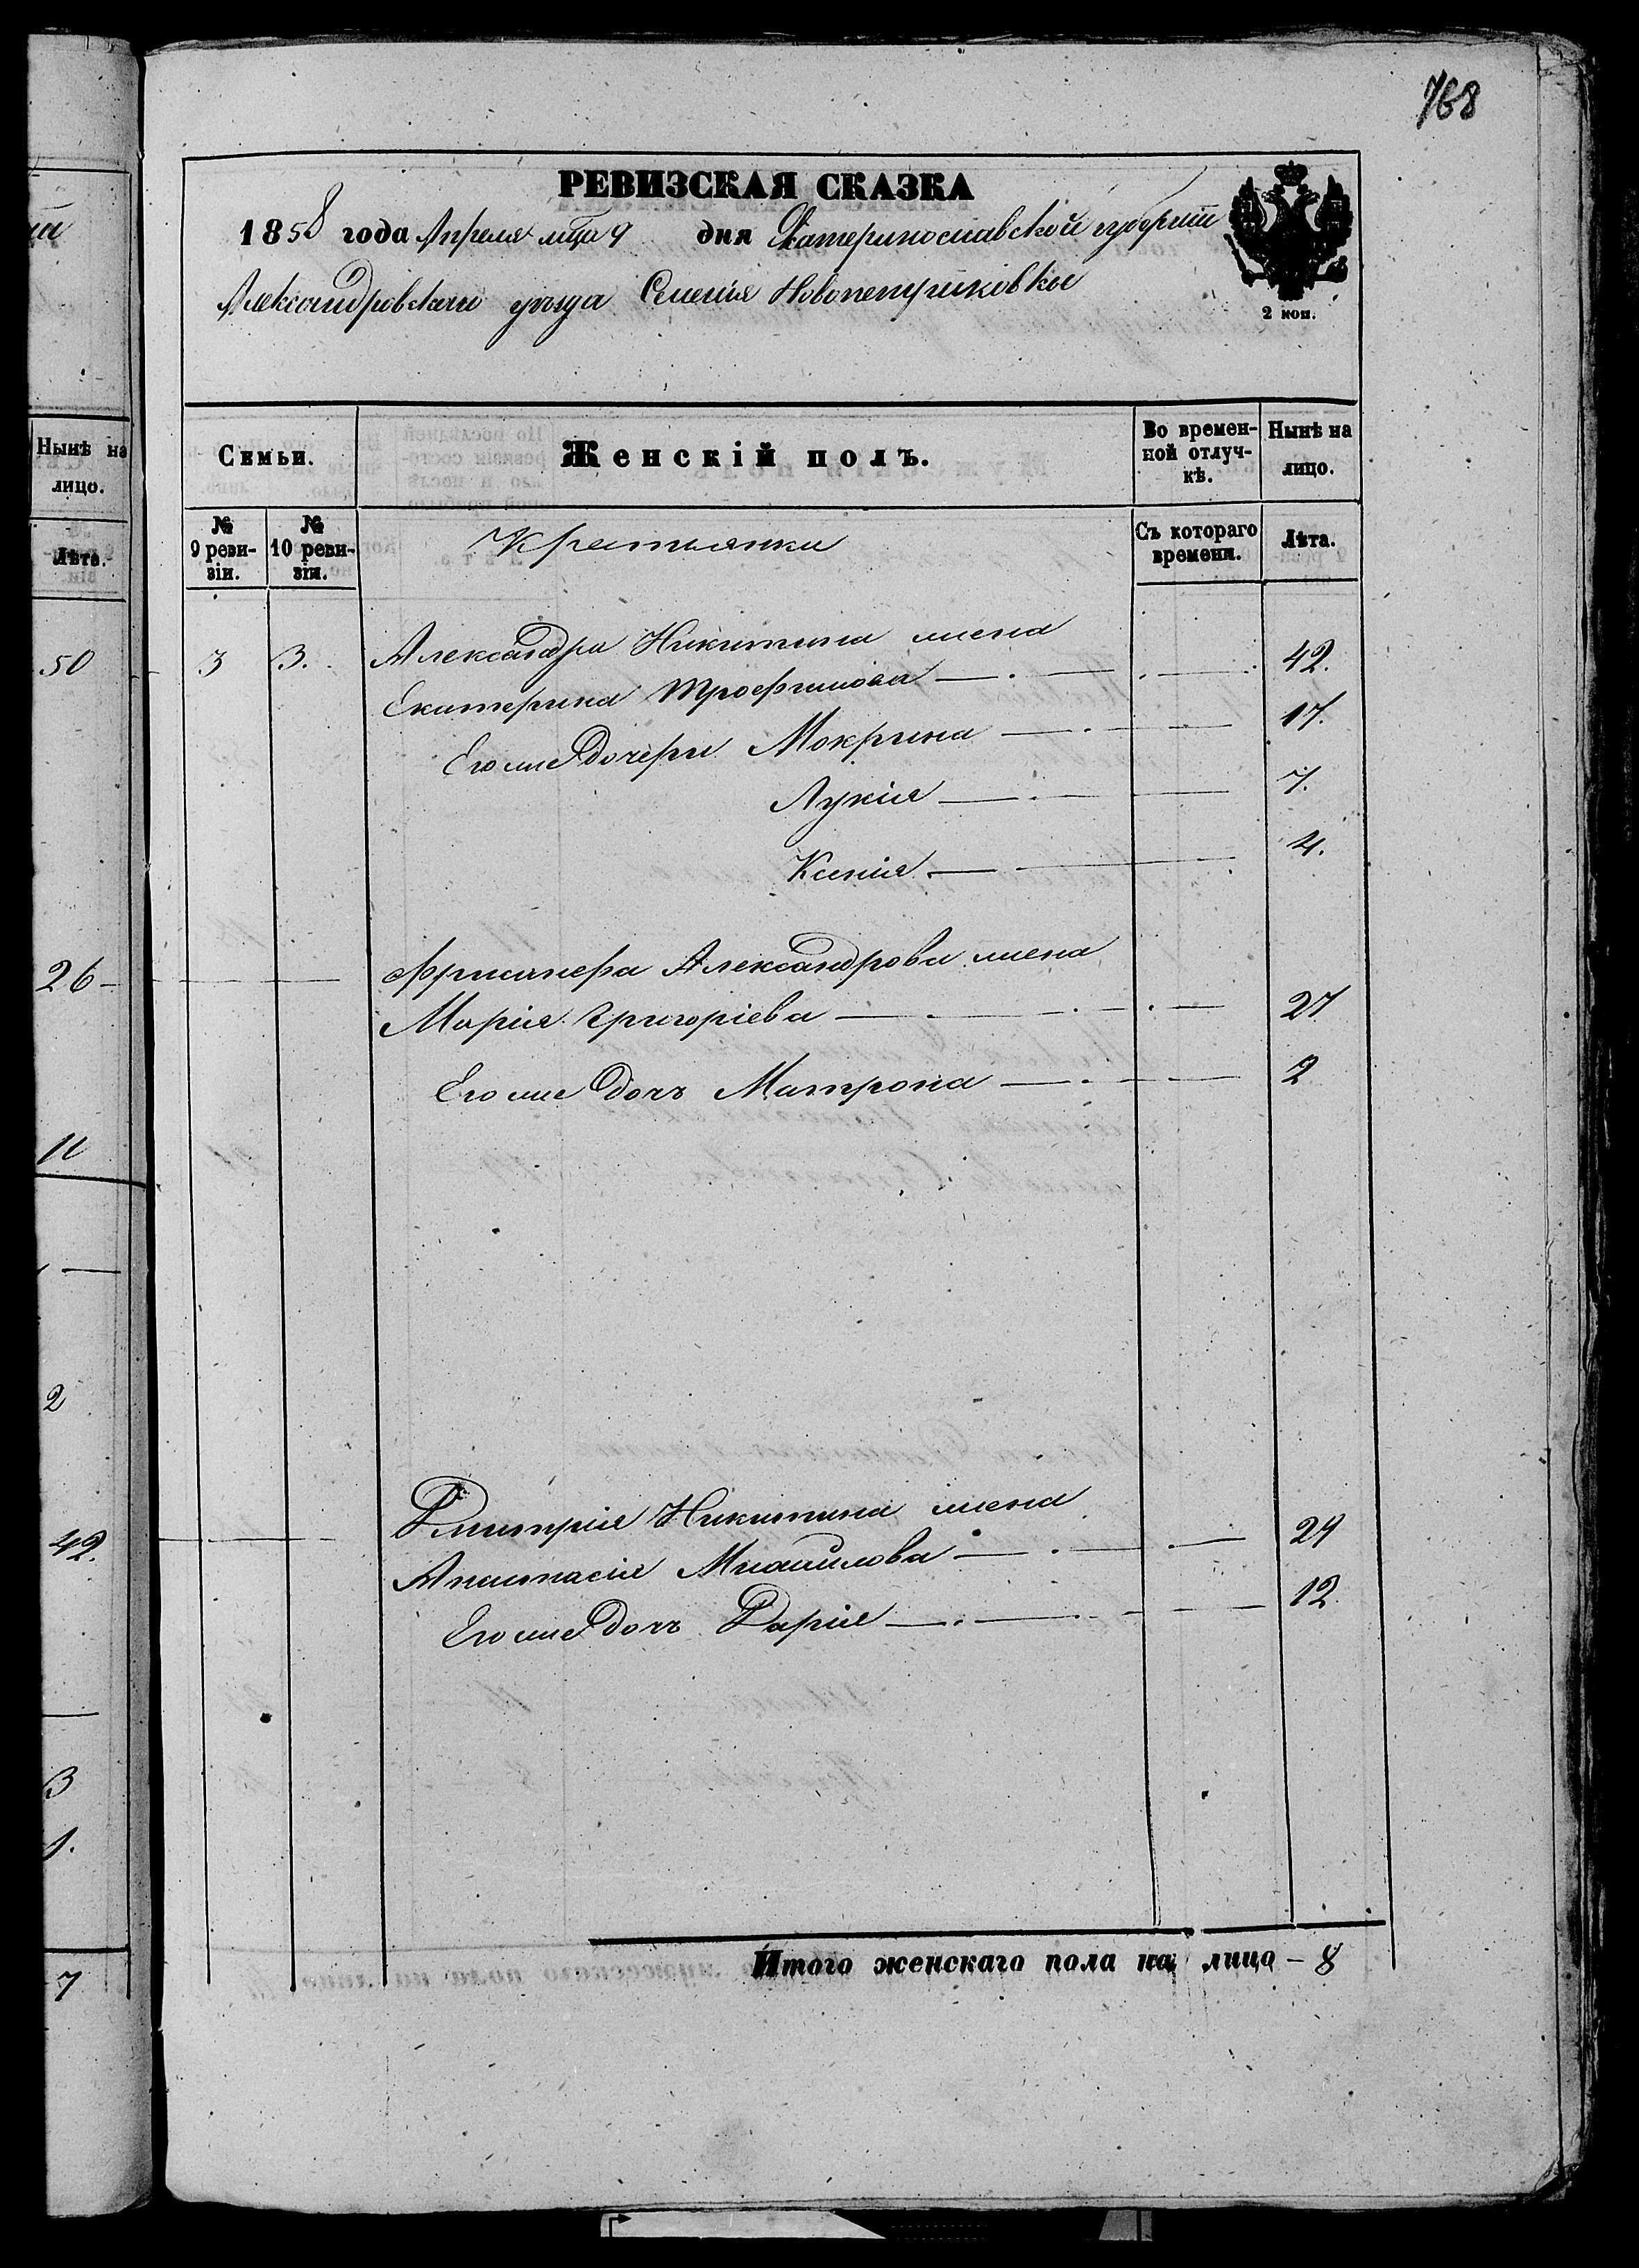 768
РЕВИЗСКАЯ СКАЗКА
1858 года Апреля мца 9 дня Екатеринославской губерніи
Александровскаго уѣзда Селенія Новопетриковки
2 коп.
Нынѣ на лицо.
Лѣта.
50
26
11
2
42.
3
1.
7
Семьи. Женскій полъ. Во времен-ной отлуч-кѣ. Нынѣ на лицо.
№ 9 реви-зіи. № 10 реви-зіи. Крестьянки Съ котораго времени. Лѣта.
3 3. Александра Никитина жена
Екатерина Трофимова 42.
Его же дочери Мокрина 17.
Лукія 7.
Ксенія 4.
Александрова жена
Марія Григоріева 27
Его же дочь Матрона 2
Дмитрія Никитина жена
Анастасія Михайлова 29
Его же дочь Дарія 12.
Итого женскаго пола на лицо – 8